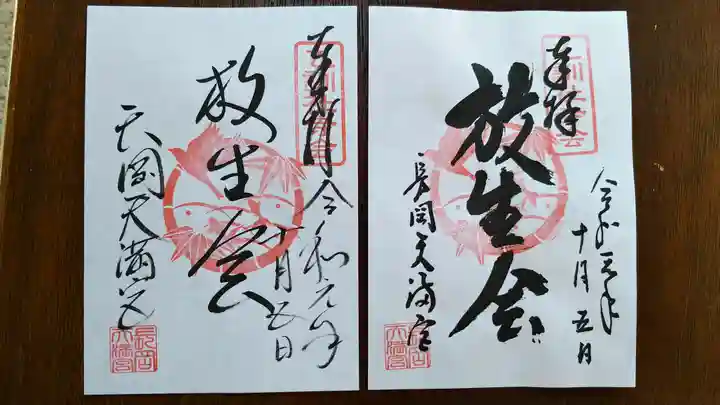 奉拝
放生会
長岡天満宮
令和元年
十月五日
長岡
天満宮
奉拝
放生会
長岡天満宮
令和元年
十月五日